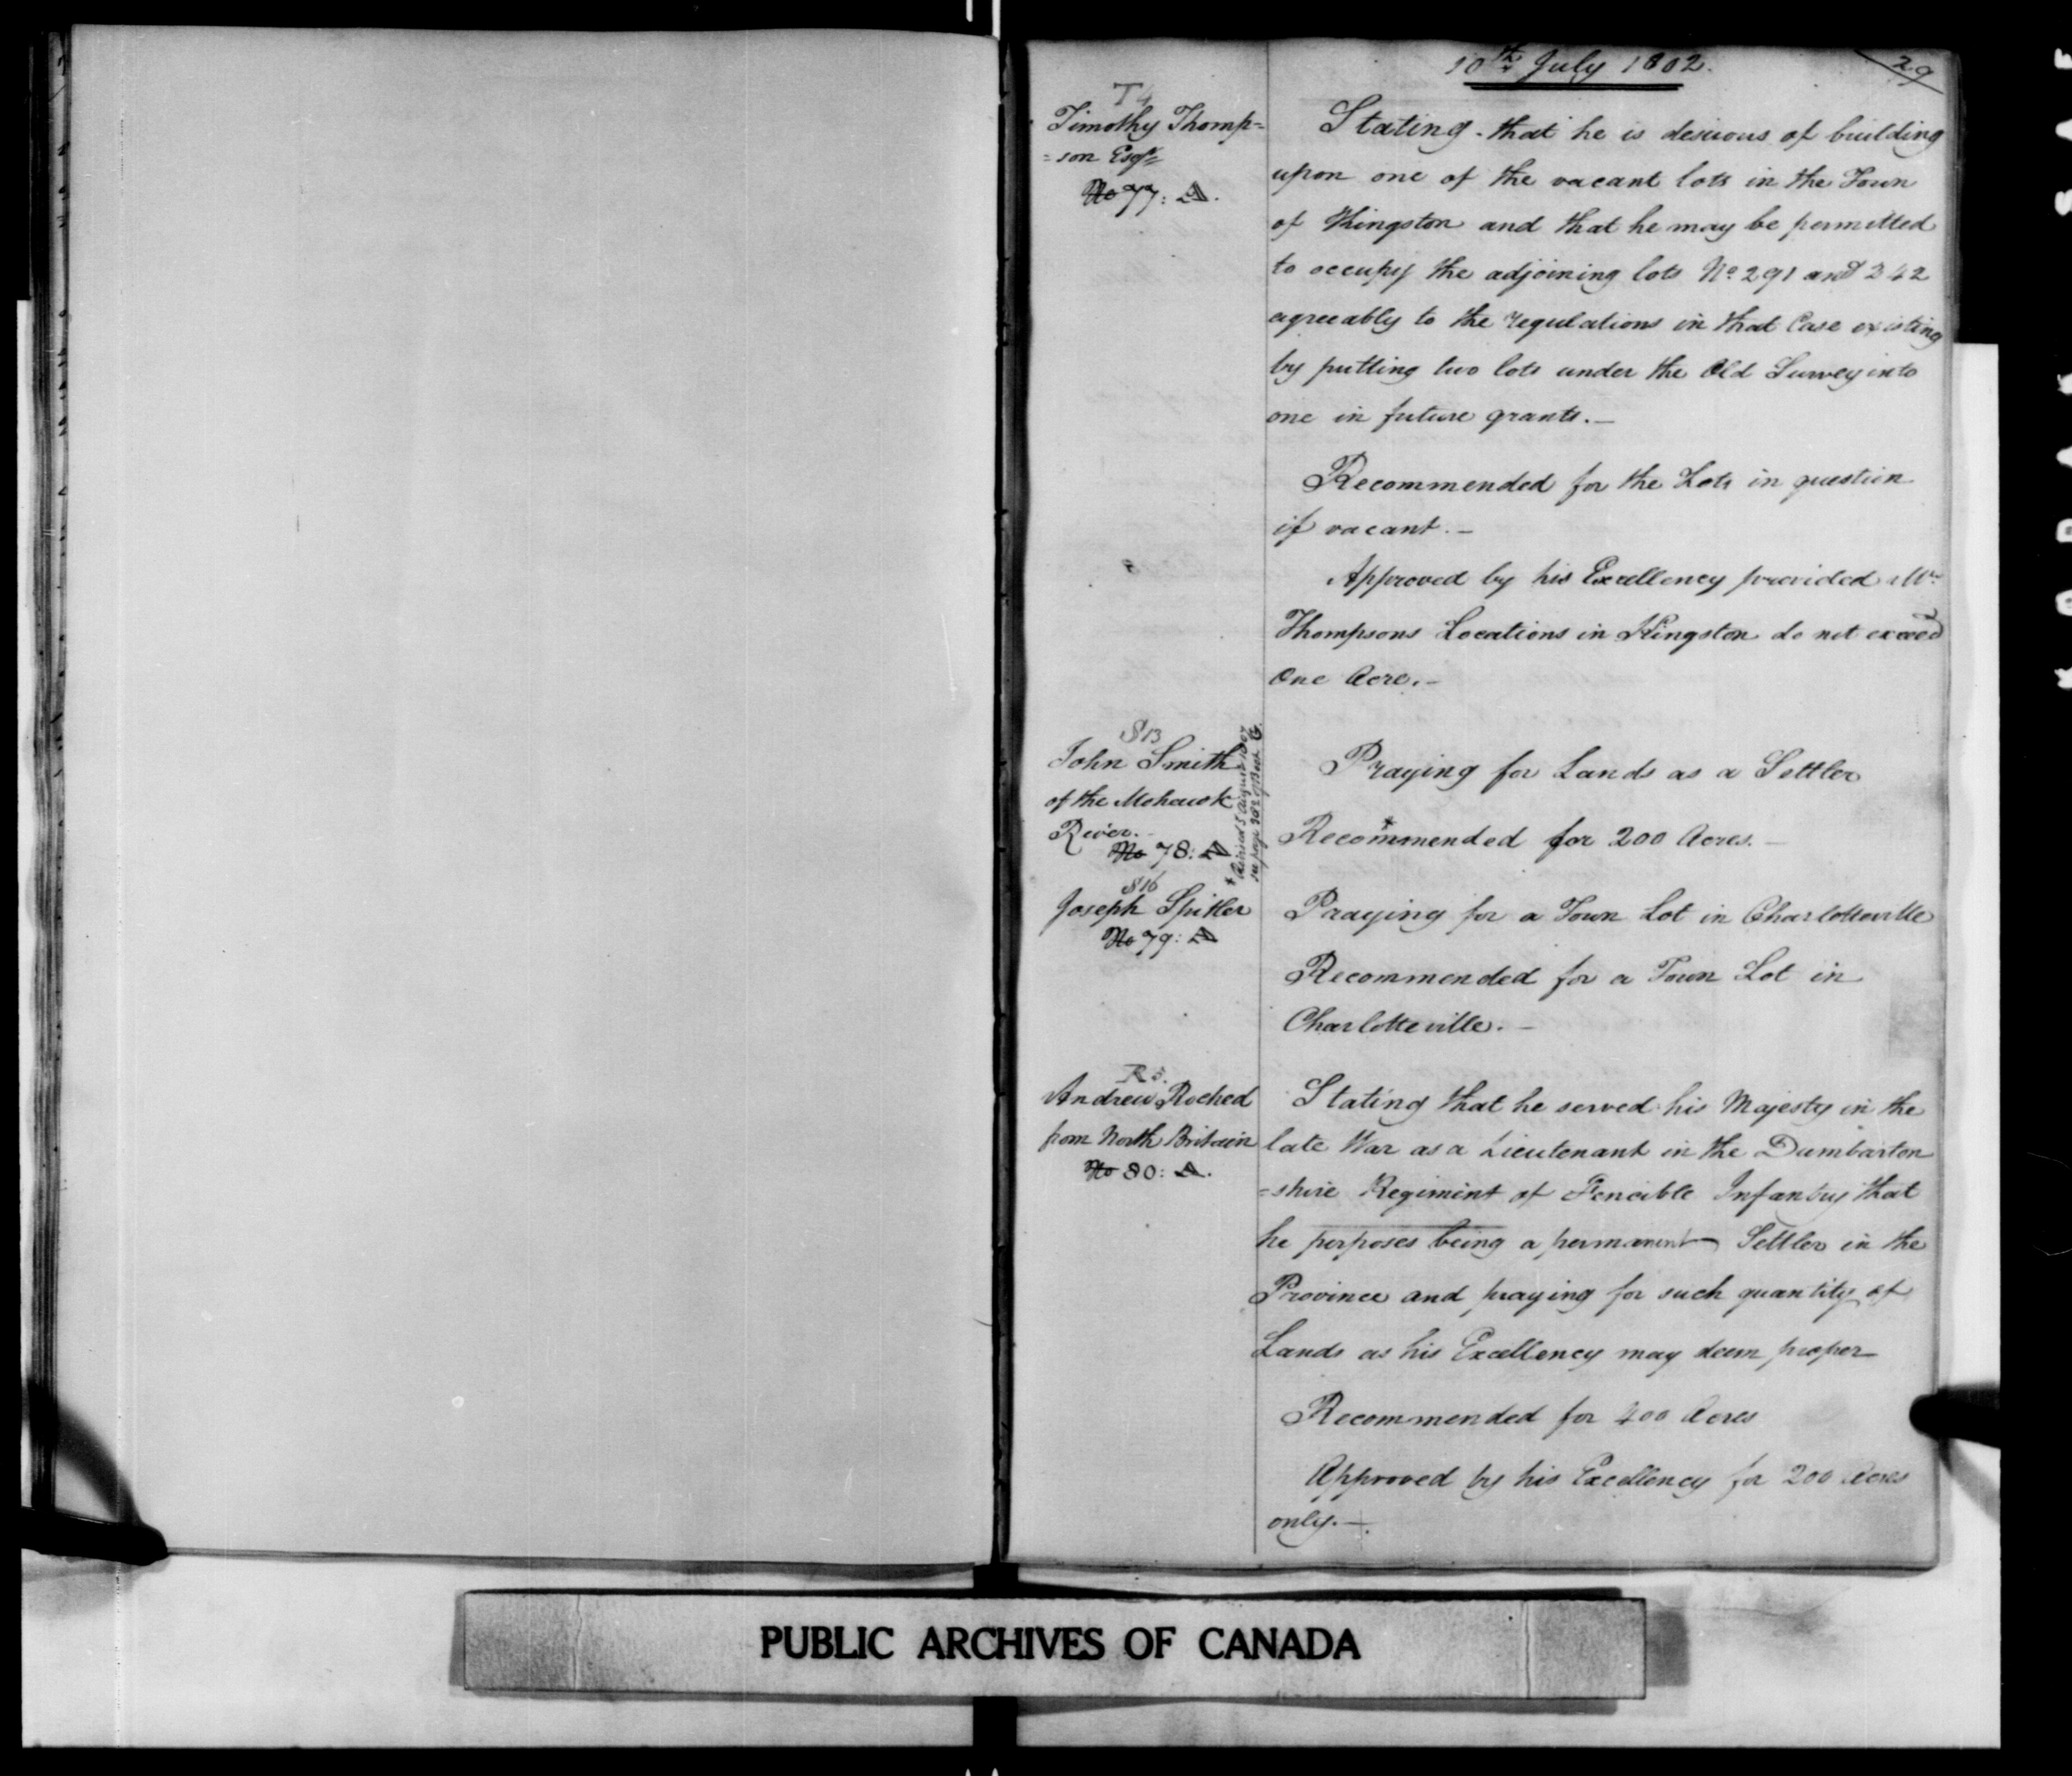 10th July 1802.
29
T4
Timothy Thomp=
=son Esqr
No 77: A.
Stating that he is desirous of building
upon one of the vacant lots in the Town
of Kingston and that he may be permitted
to occupy the adjoining lots No 291 and 342
agreeably to the regulations in that Case existing
by putting two lots under the Old Survey into
one in future grants.—
Recommended for the Lots in question
if vacant.—
Approved by his Excellency provided Mr
Thompsons Locations in Kingston do not exceed
One Acre.—
S13
John Smith
of the Mohawk
River.
No 78: A
in page 382 of Book G.
Praying for Lands as a Settler
Recommended for 200 Acres.—
S16
Joseph Spitler
No 79: A
Praying for a Town Lot in Charlotteville
Recommended for a Town Lot in
Charlotteville.—
R5.
Andrew Roched
from North Britain
No 80: A.
Stating that he served his Majesty in the
late War as a Lieutenant in the Dumbarton
=shire Regiment of Fencible Infantry that
he perposes being a permanent Settler in the
Province and praying for such quantity of
Lands as his Excellency may deem proper
Recommended for 400 Acres
Approved by his Excellency for 200 Acres
only.—
PUBLIC ARCHIVES OF CANADA